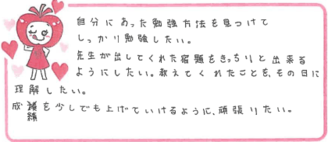 自分にあった勉強方法を見つけて
しっかり勉強したい。
先生が出してくれた宿題をきっちりと出来る
ようにしたい。教えてくれたことを、その日に
理解したい。
成績を少しでも上げていけるように、頑張りたい。